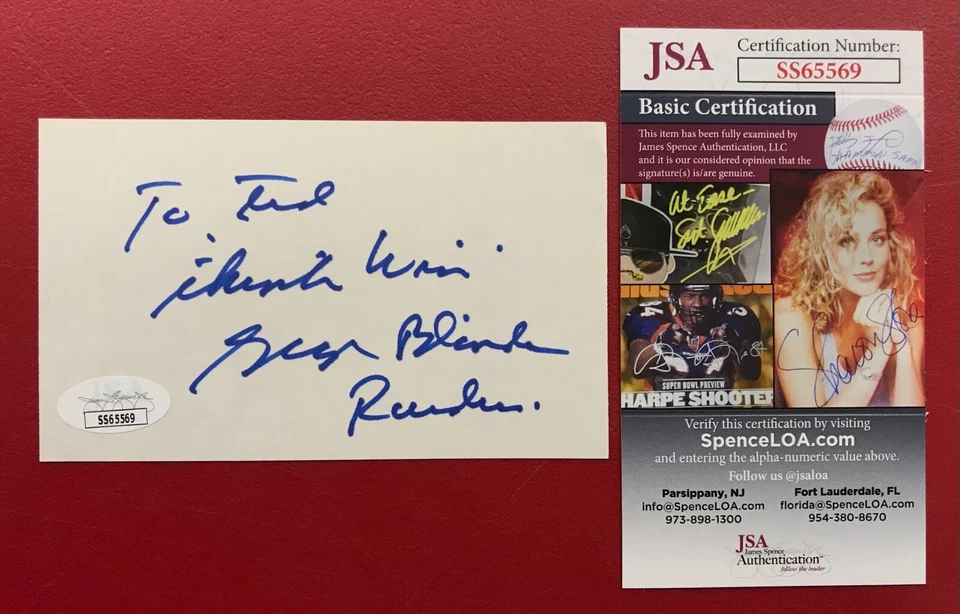 To Ted
Win
George Blanda
Raiders.
JSA
SS65569
JSA
Certification Number:
SS65569
Basic Certification
This item has been fully examined by
James Spence Authentication, LLC
and it is our considered opinion that the
signature(s) is/are genuine.
At Ease -
Sgt.
SUPER BOWL PREVIEW
HARPE SHOOTER
Sharon Stone
Verify this certification by visiting
SpenceLOA.com
and entering the alpha-numeric value above.
Follow us @jsaloa
Parsippany, NJ
info@SpenceLOA.com
973-898-1300
Fort Lauderdale, FL
florida@SpenceLOA.com
954-380-8670
JSA
James Spence
Authentication
follow the leader